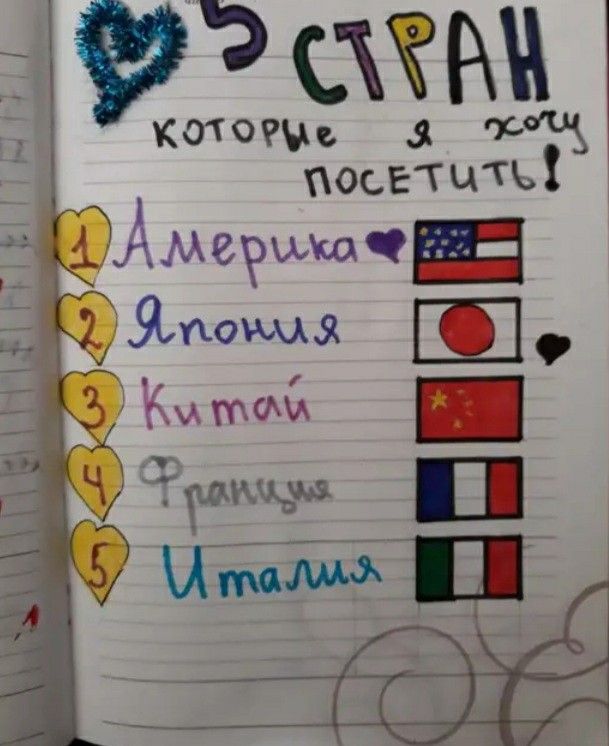 5 СТРАН
КОТОРЫе я хочу
ПОСЕТИТЬ!
1 Америка
2 Япония
3 Китай
4 Франция
5 Италия